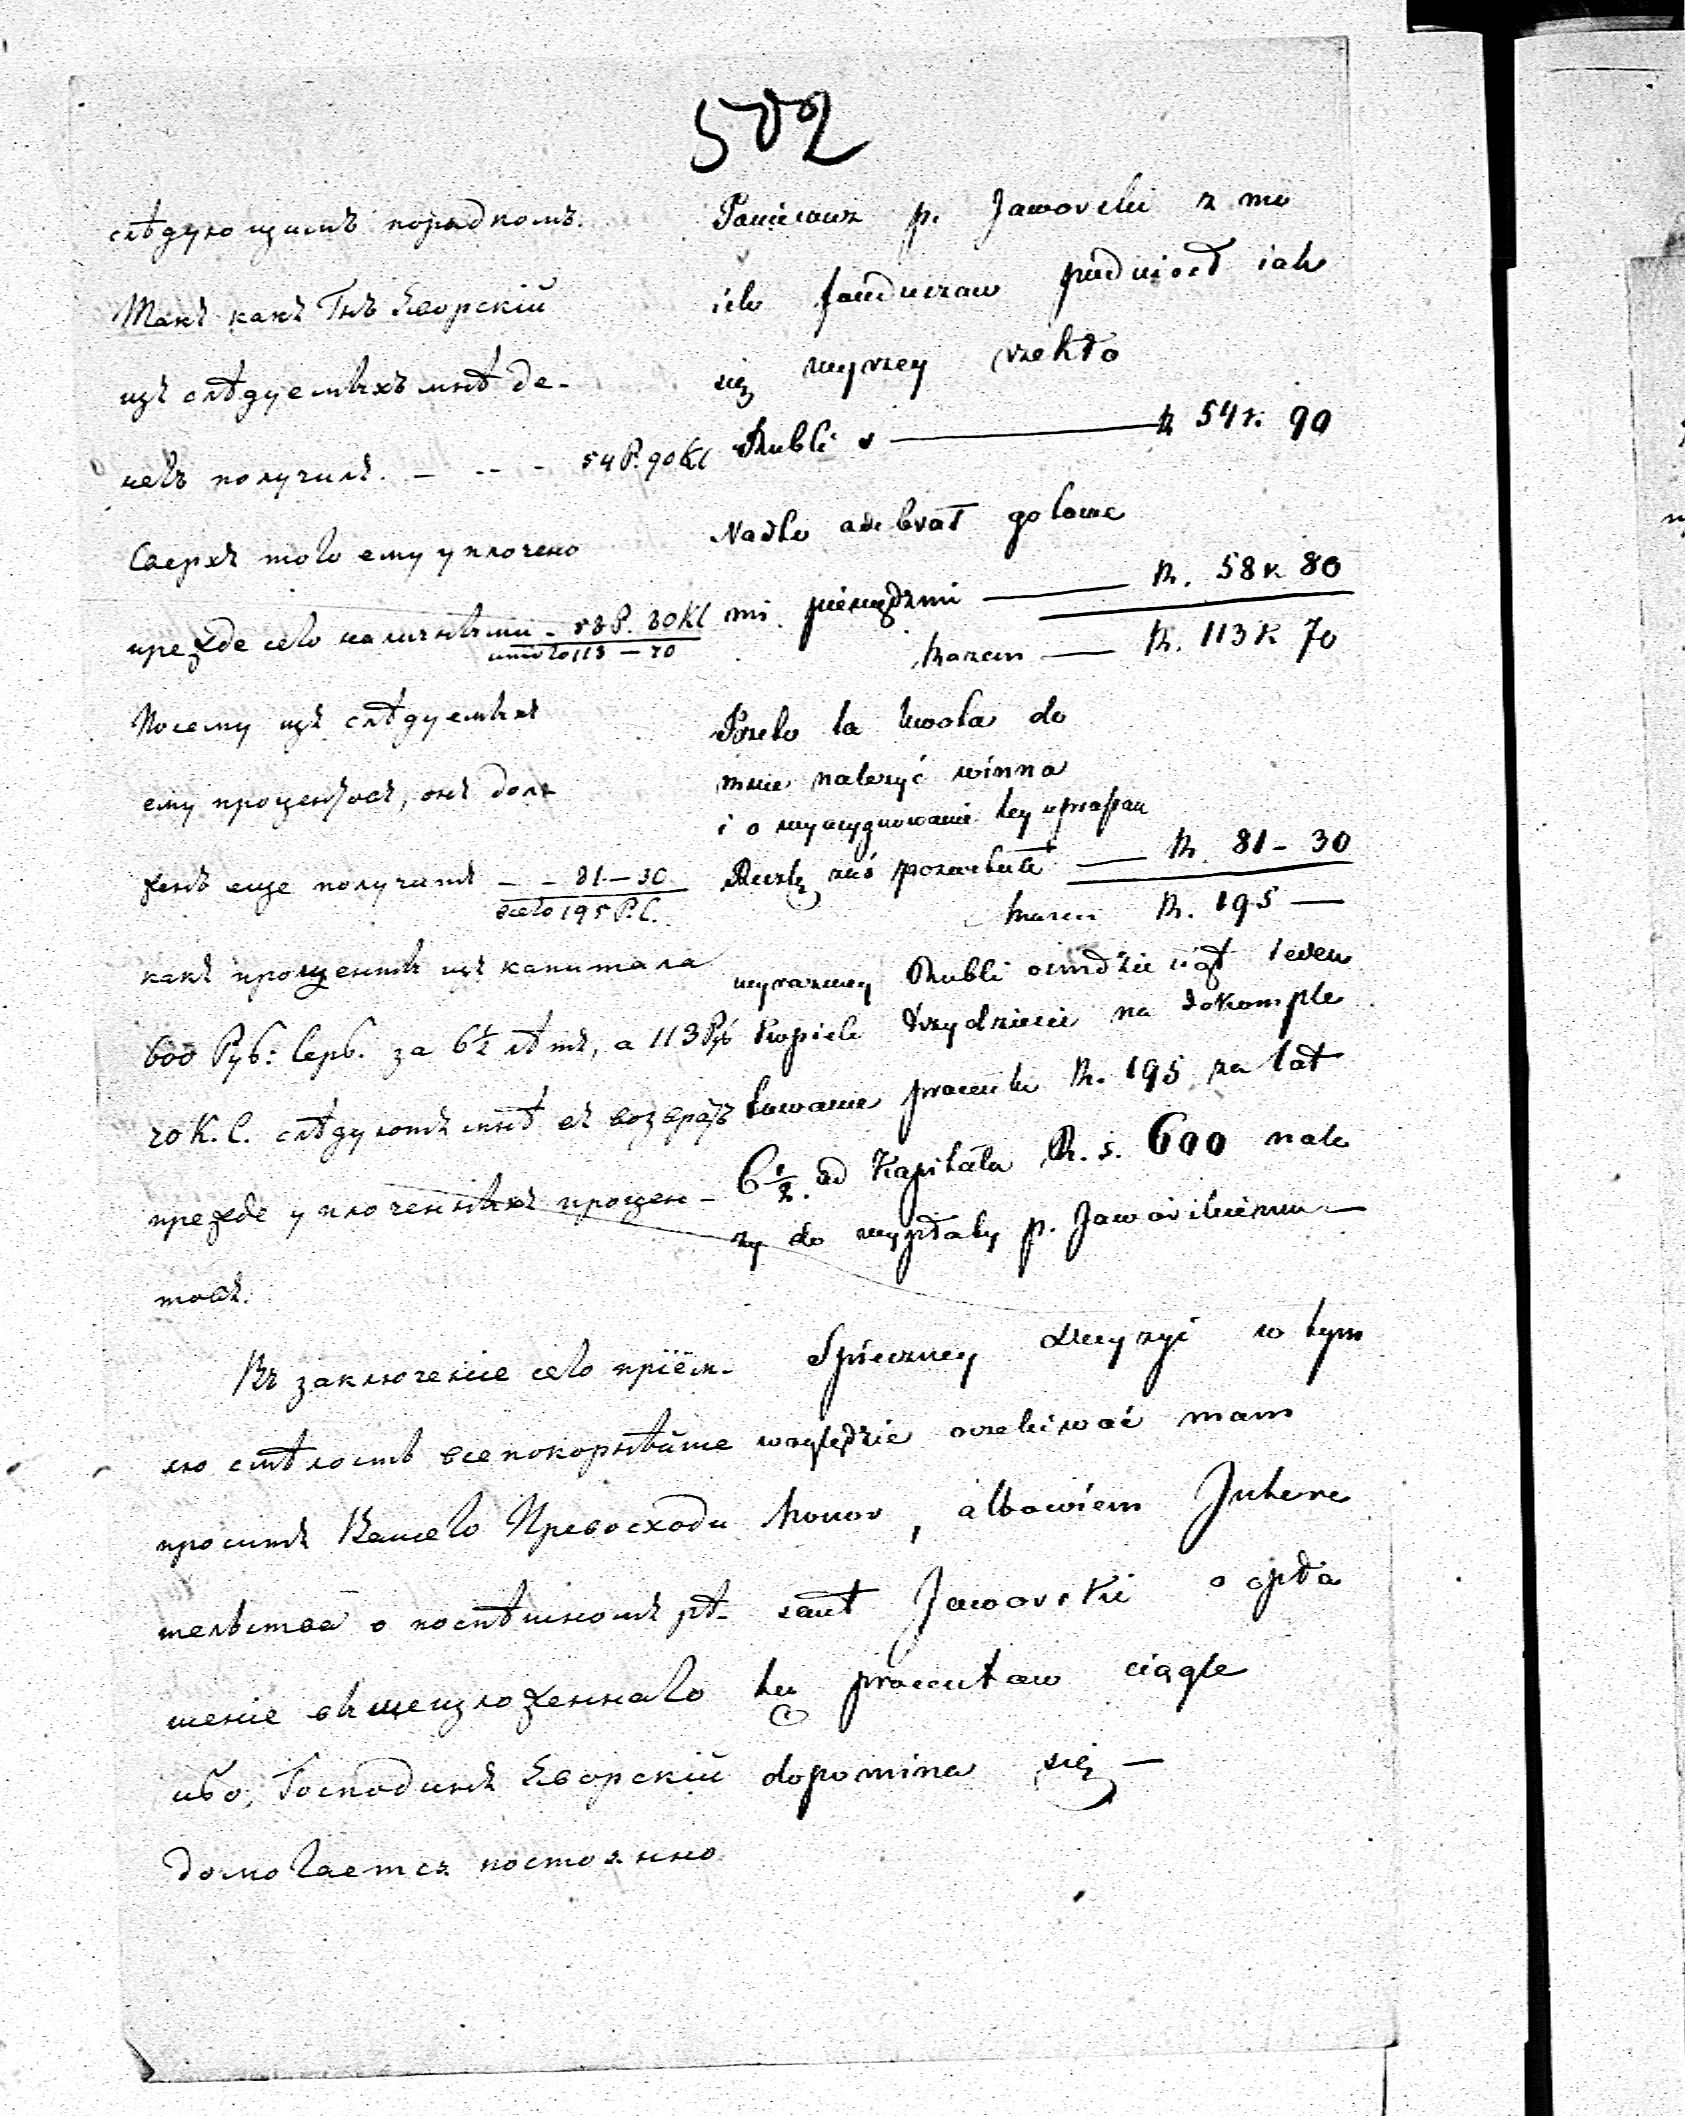 502
слѣдующимъ порядкомъ.
Такъ какъ Гнъ Яворскій
изъ слѣдуемыхъ мнѣ де-
негъ получилъ. — - - - 54 Р. 90 К С
Сверхъ того ему уплочено
прежде сего наличными - 58 Р. 80 К С
итого 113 — 70
Посему изъ слѣдуемыхъ
ему процентовъ, онъ дол-
женъ еще получить — - 81—30
всего 195 Р. С.
какъ проценты изъ капитала
600 Руб: Сереб. за 6½ лѣтъ, а 113 Руб
70 К. С. слѣдуютъ мнѣ въ возвратъ
прежде уплоченныхъ процен-
товъ.
Въ заключеніе сего пріем-
лю смѣлость всепокорнѣйше
просить Вашего Превосходи
тельства о поспѣшномъ рѣ-
шеніе вышеизложеннаго
ибо, Господинъ Яворскій
домогается постоянно
Ponieważ p. Jaworski z mo
ich funduszów podniósł iak
się wyżey rzekło
Rubli s — R 54 k. 90
Nadto odebrał gotowe
mi pieniędzmi — R. 58 k 80
Razem — R. 113 k 70
Przeto ta kwota do
mnie należyć winna
i o wyasygnowanie tey upraszam
Resztę zaś pozostałą — R. 81 - 30
Razem R. 195 —
wyrazney Rubli ośmdziesiąt ieden
Kopiek trzydzieści na dokomple
towanie procentu R. 195 za lat
6½ od Kapitału R. s. 600 nale
ży do wypłaty p. Jaworskiemu —
Spieszney decyzyi w tym
względzie oczekiwać mam
honor, albowiem Intere
sant Jaworski o opła
tę procentów ciągle
dopomina się —